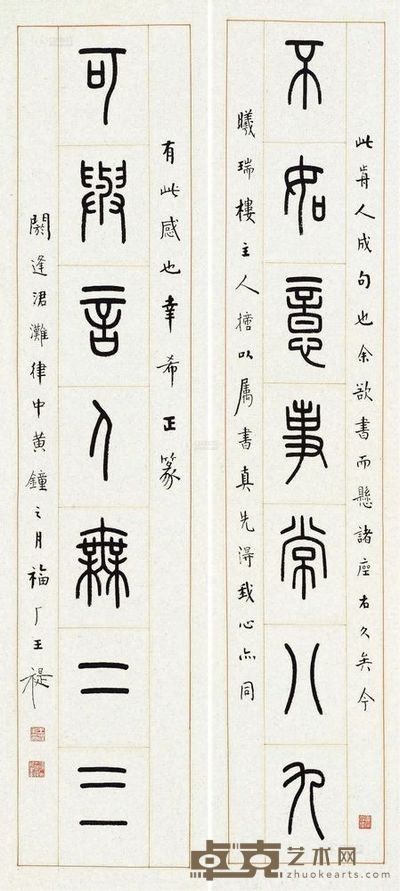 此歬人成句也余欲書而懸諸座右久矣今
不如意事常八九
曦瑞樓主人以屬書真先得我心亦同
有此感也幸希正篆
可與言人無二三
閼逢涒灘律中黃鐘之月福厂王禔
卓克艺术网
www.zhuokearts.com